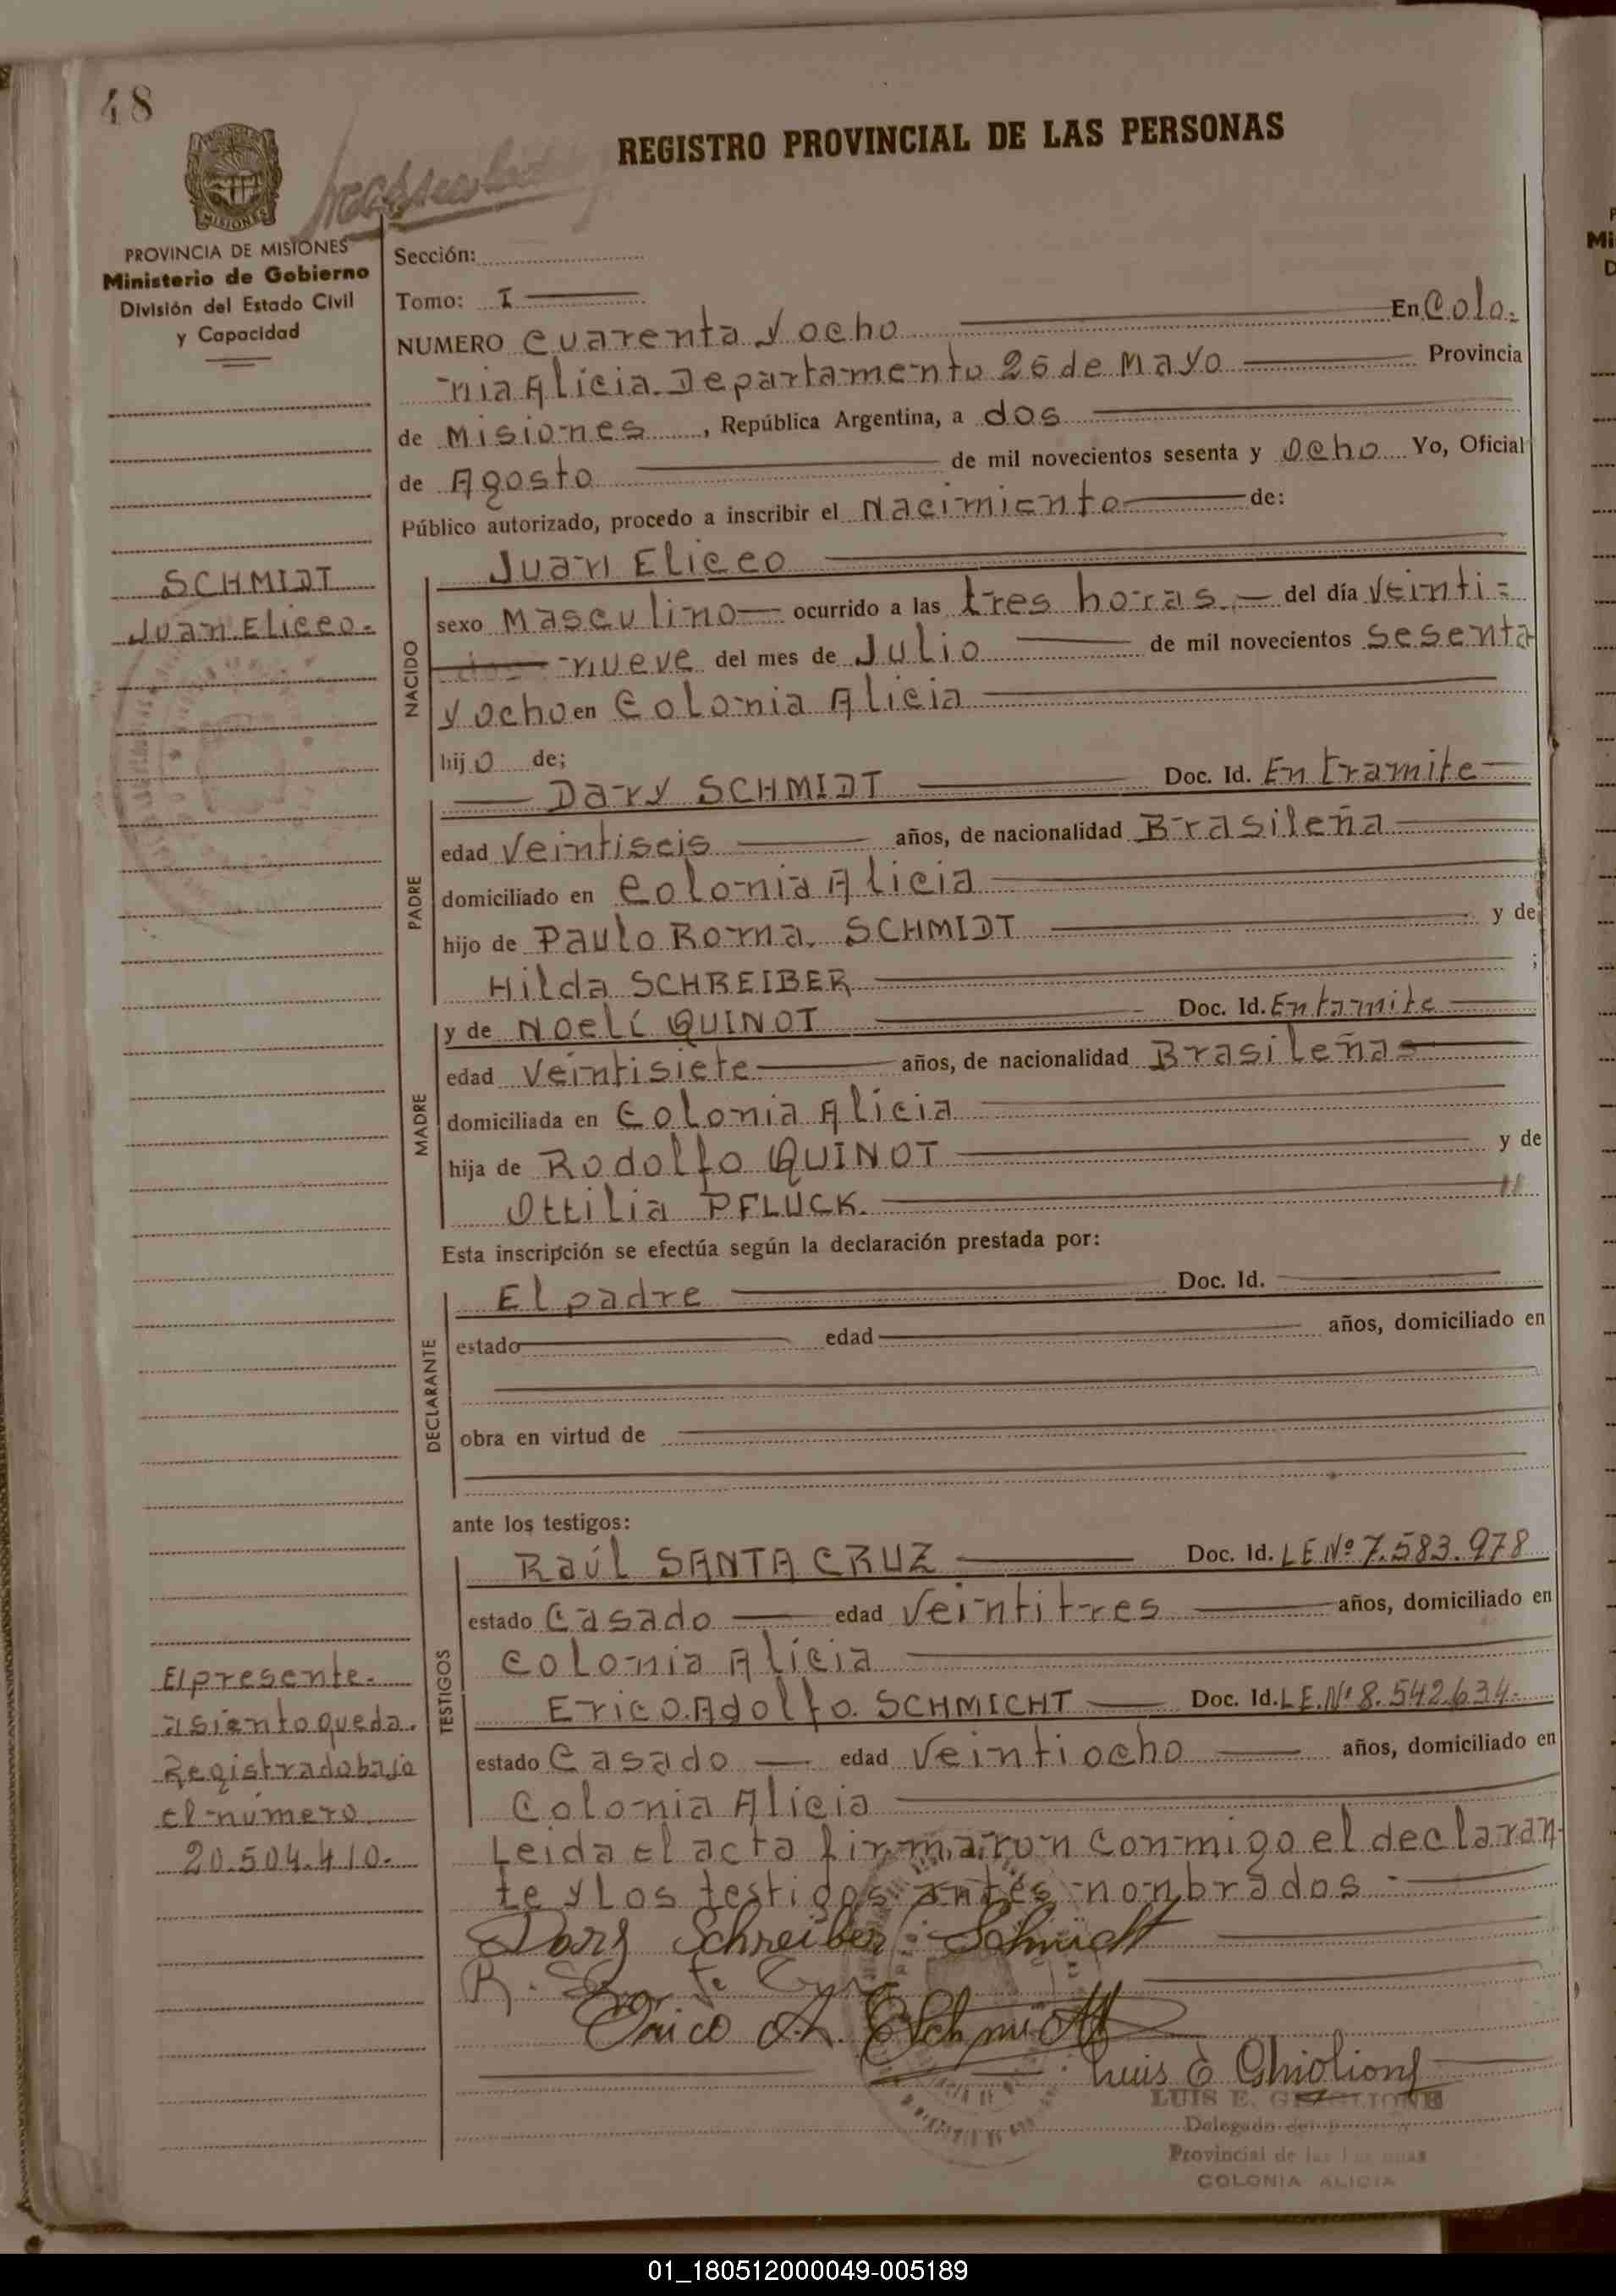 48
REGISTRO PROVINCIAL DE LAS PERSONAS
MISIONES
PROVINCIA DE MISIONES
Ministerio de Gobierno
División del Estado Civil
y Capacidad
Sección:
Tomo: I
NUMERO Cuarenta y ocho En Colo-
nia Alicia Departamento 25 de Mayo Provincia
de Misiones, República Argentina, a dos
de Agosto de mil novecientos sesenta y ocho Yo, Oficial
Público autorizado, procedo a inscribir el Nacimiento de:
SCHMIDT
Juan Eliceo.
NACIDO
Juan Eliceo
sexo Masculino ocurrido a las tres horas.- del día veinti=
nueve del mes de Julio de mil novecientos sesenta
y ocho en Colonia Alicia
hijo de;
PADRE
Dary SCHMIDT Doc. Id. En tramite
edad Veintiseis años, de nacionalidad Brasileña
domiciliado en Colonia Alicia
hijo de Paulo Roma. SCHMIDT y de
Hilda SCHREIBER ;
MADRE
y de Noelí QUINOT Doc. Id. En tamite
edad Veintisiete años, de nacionalidad Brasileña
domiciliada en Colonia Alicia
hija de Rodolfo QUINOT y de
Ottilia PFLUCK.
Esta inscripción se efectúa según la declaración prestada por:
DECLARANTE
El padre Doc. Id.
estado edad años, domiciliado en
obra en virtud de
ante los testigos:
TESTIGOS
Raúl SANTA CRUZ Doc. Id. L E Nº 7.583.978
estado Casado edad Veintitres años, domiciliado en
Colonia Alicia
Erico Adolfo SCHMICHT Doc. Id. L E. Nº 8.542.634.
estado Casado edad Veintiocho años, domiciliado en
Colonia Alicia
Leida el acta firmaron conmigo el declaran-
te y los testigos antes nonbrados
El presente.
asiento queda.
Registrado bajo
el número
20.504.410.
Dary Schreiber Schmidt
Erico A. Schmidt
Luis E Ghiglione
LUIS E. GHIGLIONE
Delegado del
Provincial de las Personas
COLONIA ALICIA
01_180512000049-005189